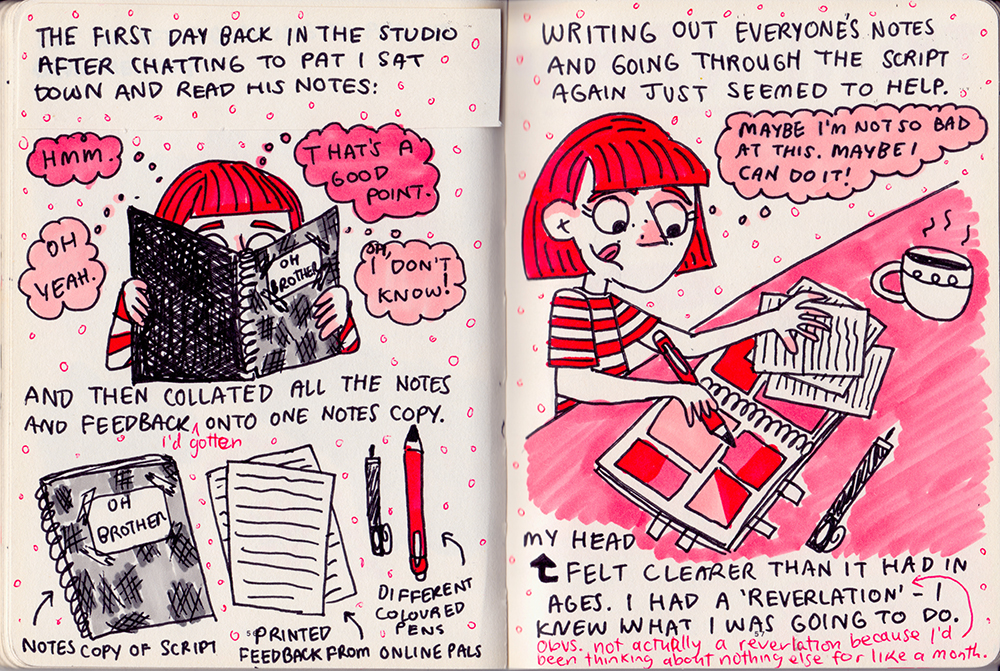 THE FIRST DAY BACK IN THE STUDIO
AFTER CHATTING TO PAT I SAT
DOWN AND READ HIS NOTES:
HMM.
THAT'S A
GOOD
POINT.
OH
YEAH.
OH,
I DON'T
KNOW!
OH
BROTHER
AND THEN COLLATED ALL THE NOTES
AND FEEDBACK ^ ONTO ONE NOTES COPY.
I'd gotten
OH
BROTHER
NOTES COPY OF SCRIPT
PRINTED
FEEDBACK FROM ONLINE PALS
DIFFERENT
COLOURED
PENS
WRITING OUT EVERYONE'S NOTES
AND GOING THROUGH THE SCRIPT
AGAIN JUST SEEMED TO HELP.
MAYBE I'M NOT SO BAD
AT THIS. MAYBE I
CAN DO IT!
MY HEAD
FELT CLEARER THAN IT HAD IN
AGES. I HAD A 'REVERLATION' - I
KNEW WHAT I WAS GOING TO DO.
Obvs. not actually a reverlation because I'd
been thinking about nothing else for like a month.